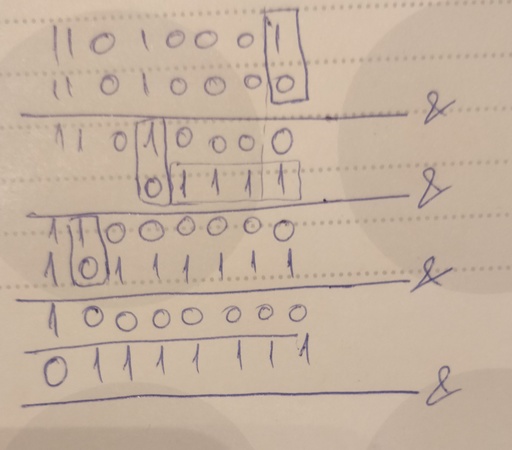 11010001
11010000
&
11010000
01111
&
11000000
10111111
&
10000000
01111111
&